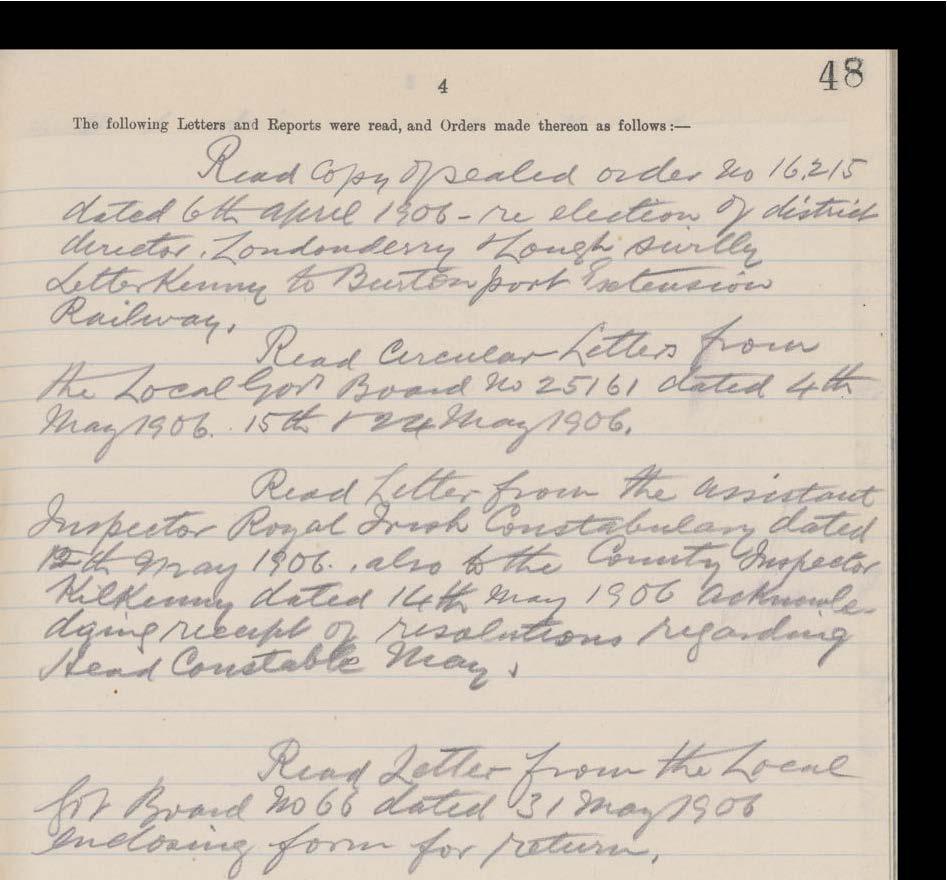 4
48
The following Letters and Reports were read, and Orders made thereon as follows:—
Read Copy of sealed order No 16,215
dated 6th april 1906 - re election of district
director. Londonderry & Lough swilly
LetterKenny to Burtonport Extension
Railway.
Read Circular Letters from
the Local Govt Board No 25161 dated 4th
May 1906. 15th & 24 May 1906.
Read Letter from the assistant
Inspector Royal Irish Constabulary dated
12th May 1906. also to the County Inspector
Kilkenny dated 14th May 1906 acknowle-
dging receipt of resolutions regarding
Head Constable May.
Read Letter from the Local
Gvt Board No 66 dated 31 May 1906
enclosing form for return.